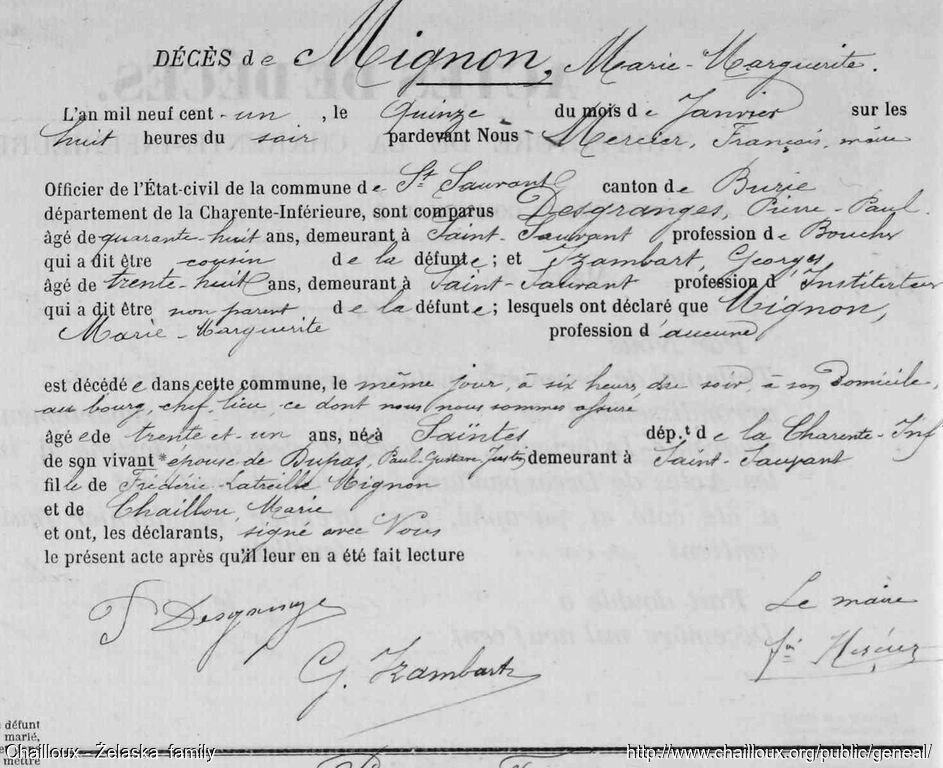 DÉCÈS de Mignon, Marie-Marguerite.
L'an mil neuf cent-un, le Quinze du mois de Janvier sur les
huit heures du soir pardevant Nous - Mercier, François, maire
Officier de l'État-civil de la commune de St Sauvant canton de Burie
département de la Charente-Inférieure, sont comparus Desgranges, Pierre-Paul.
âgé de quarante-huit ans, demeurant à Saint-Sauvant profession de Boucher
qui a dit être cousin de la défunte ; et Izambart, Georges
âgé de trente-huit ans, demeurant à Saint-Sauvant profession d'Instituteur
qui a dit être non parent de la défunte ; lesquels ont déclaré que Mignon,
Marie-Marguerite profession d'aucune
est décédée dans cette commune, le même jour, à six heures du soir, à son domicile,
au bourg, chef-lieu, ce dont nous nous sommes assuré
âgée de trente et-un ans, née à Saïntes dép.t de la Charente-Inf
de son vivant * épouse de Dupas, Paul-Gustave demeurant à Saint-Sauvant
fille de Frédéric Mignon
et de Chaillou, Marie
et ont, les déclarants, signé avec Nous
le présent acte après qu'il leur en a été fait lecture
P Desgranges
Le maire
G. Izambart
fois Mercier
défunt
marié,
mettre
Chailloux - Zelaska family
http://www.chailloux.org/public/geneall/